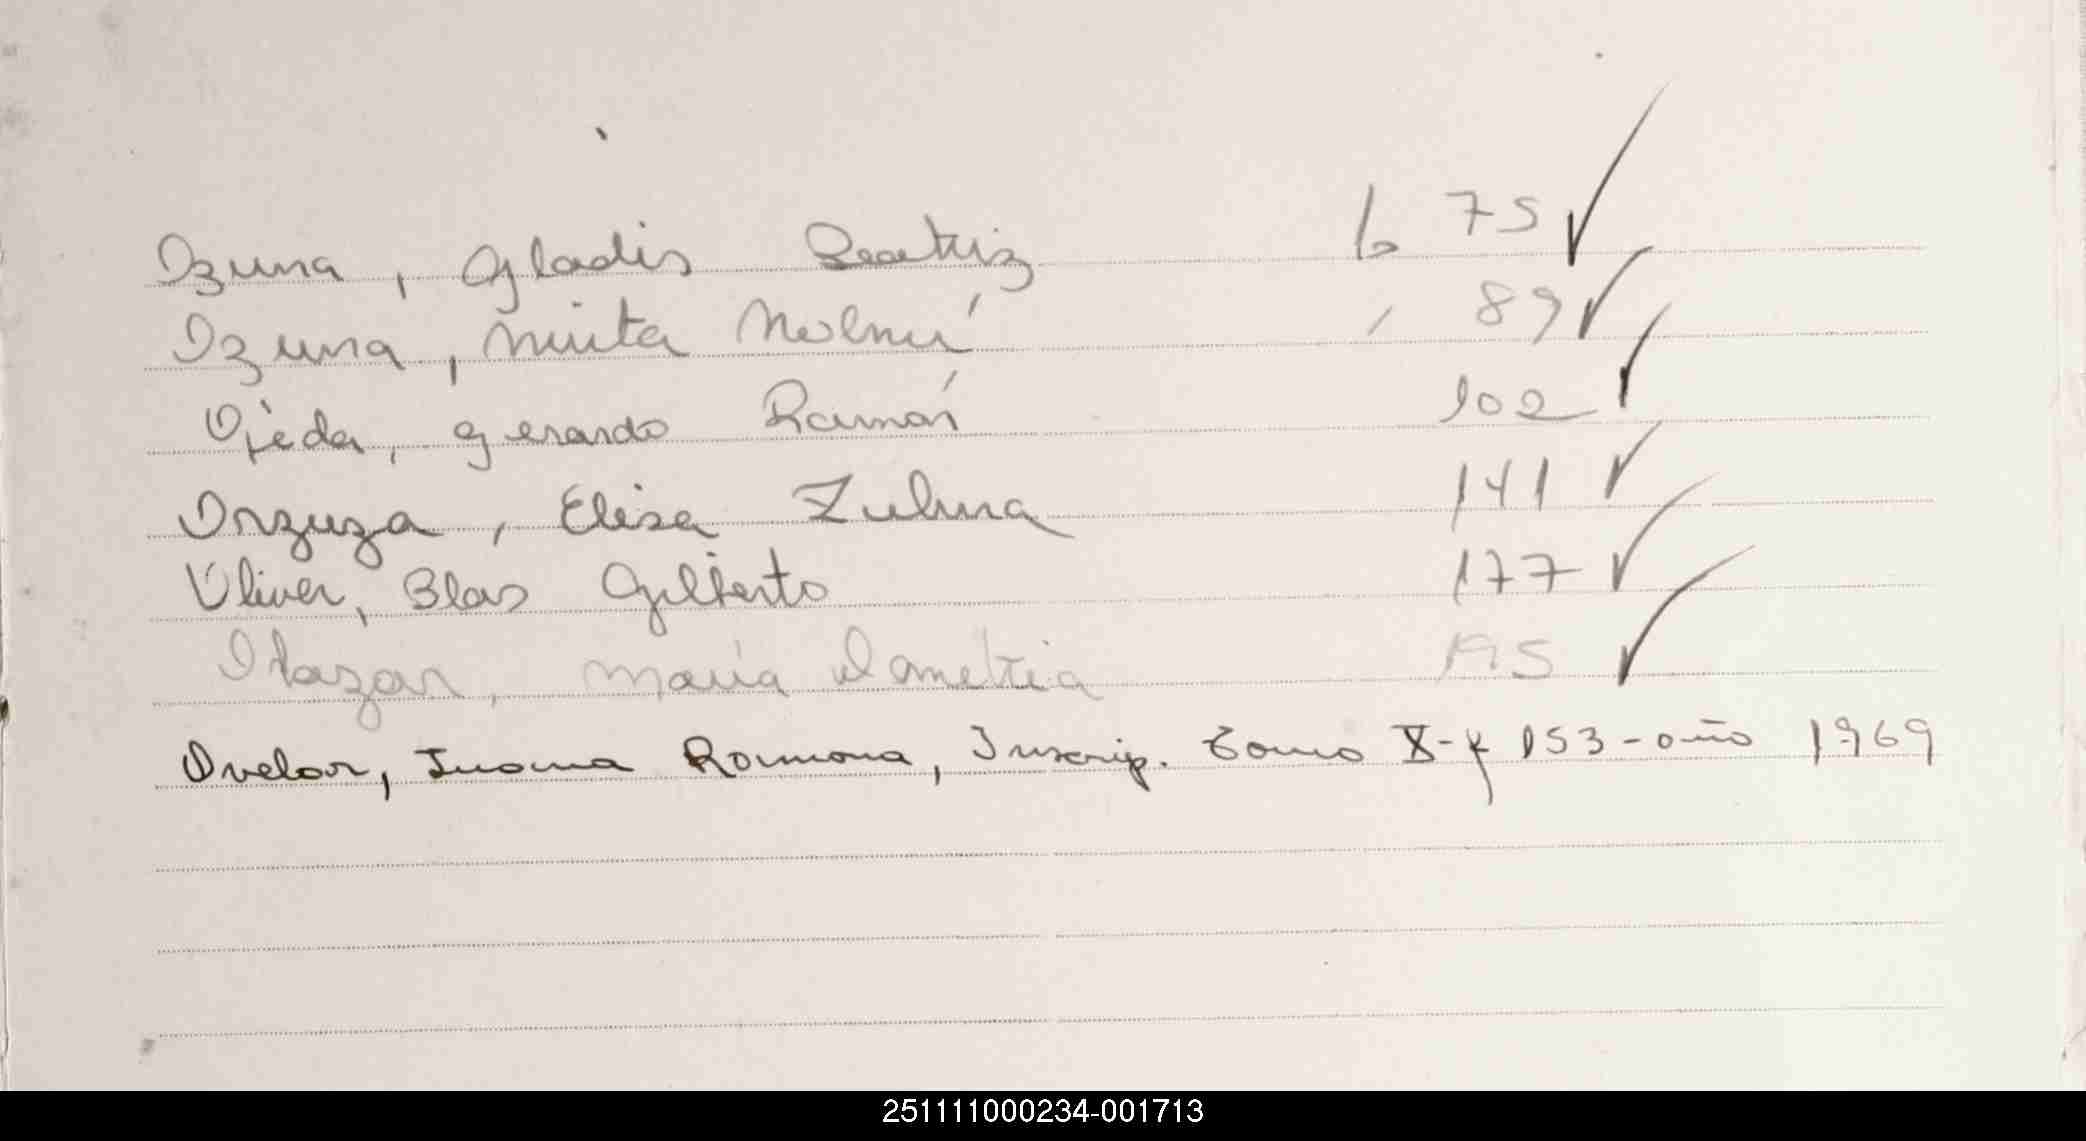 Ozuna, Gladis Beatriz fo 75
Ozuna, Mirta Noemí , 89
Ojeda, Gerardo Ramón 102
Orzuza, Elisa Zulma 141
Oliver, Blas Gilberto 177
Olazar, María 195
Ovelar, Juana Ramona, Inscrip. Tomo X-f 153-año 1969
251111000234-001713